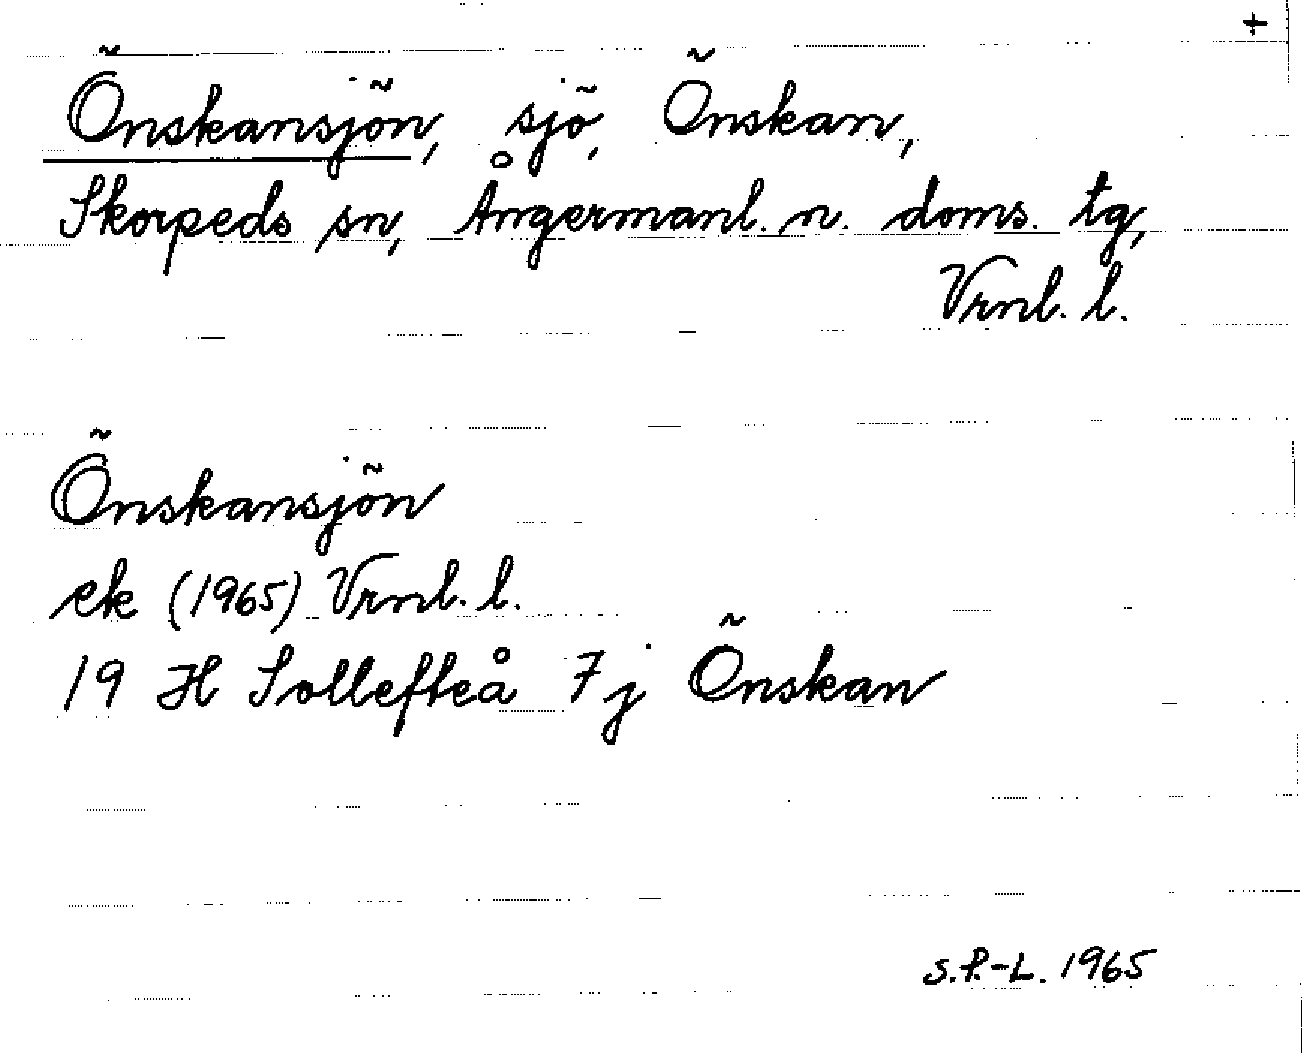 +
Önskansjön, sjö, Önskan,
Skorpeds sn, Ångermanl. n. doms. tg,
Vrnl. l.
Önskansjön
ek (1965) Vrnl. l.
19 H Sollefteå 7 j Önskan
S.P.-L. 1965